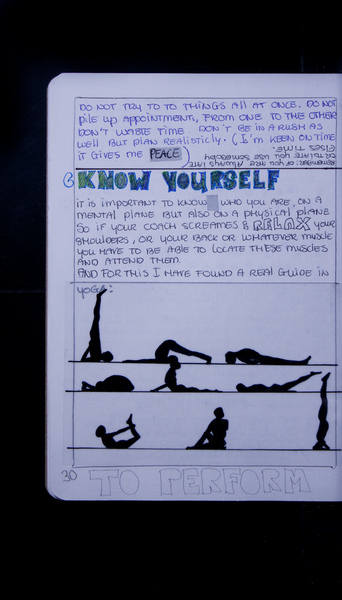 DO NOT TRY TO TO THINGS All AT ONCE. DO NOT
pile up APPOINTMENTS, FROM ONE TO THE OTHER
DON'T WASTE TIME DON'T BE IN A RUSH AS
Well BUT PLAN REALISTICLY. (I'M KEEN ON TIME
IT GIVES ME PEACE)
Remember: or you are Always late
or late you use somebody
elses TIME.
6 KNOW YOURSELF
IT IS IMPORTANT TO KNOW WHO YOU ARE, ON A
MENTAL PLANE BUT ALSO ON A PHYSICAL PLANE
SO IF YOUR COACH SCREAMES & RELAX YOUR
SHOULDERS, OR YOUR BACK OR WHATEVER MUSCLE
YOU HAVE TO BE ABLE TO LOCATE THESE MUSCLES
AND ATTEND THEM.
AND FOR THIS I HAVE FOUND A REAL GUIDE IN
YOGA:
30 TO PERFORM